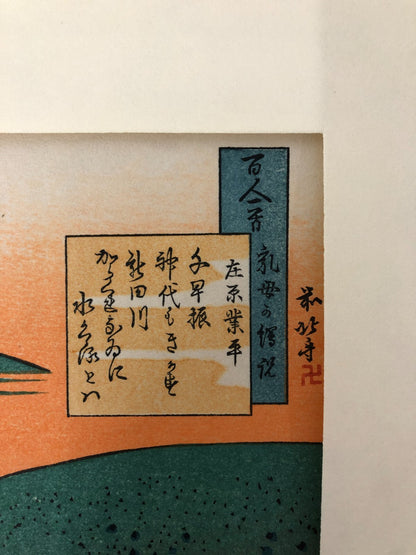 百人一首
乳母か繪説
在原業平
千早振
神代もきかす
龍田川
からくれなゐに
水くゝるとハ
前北斎
卍